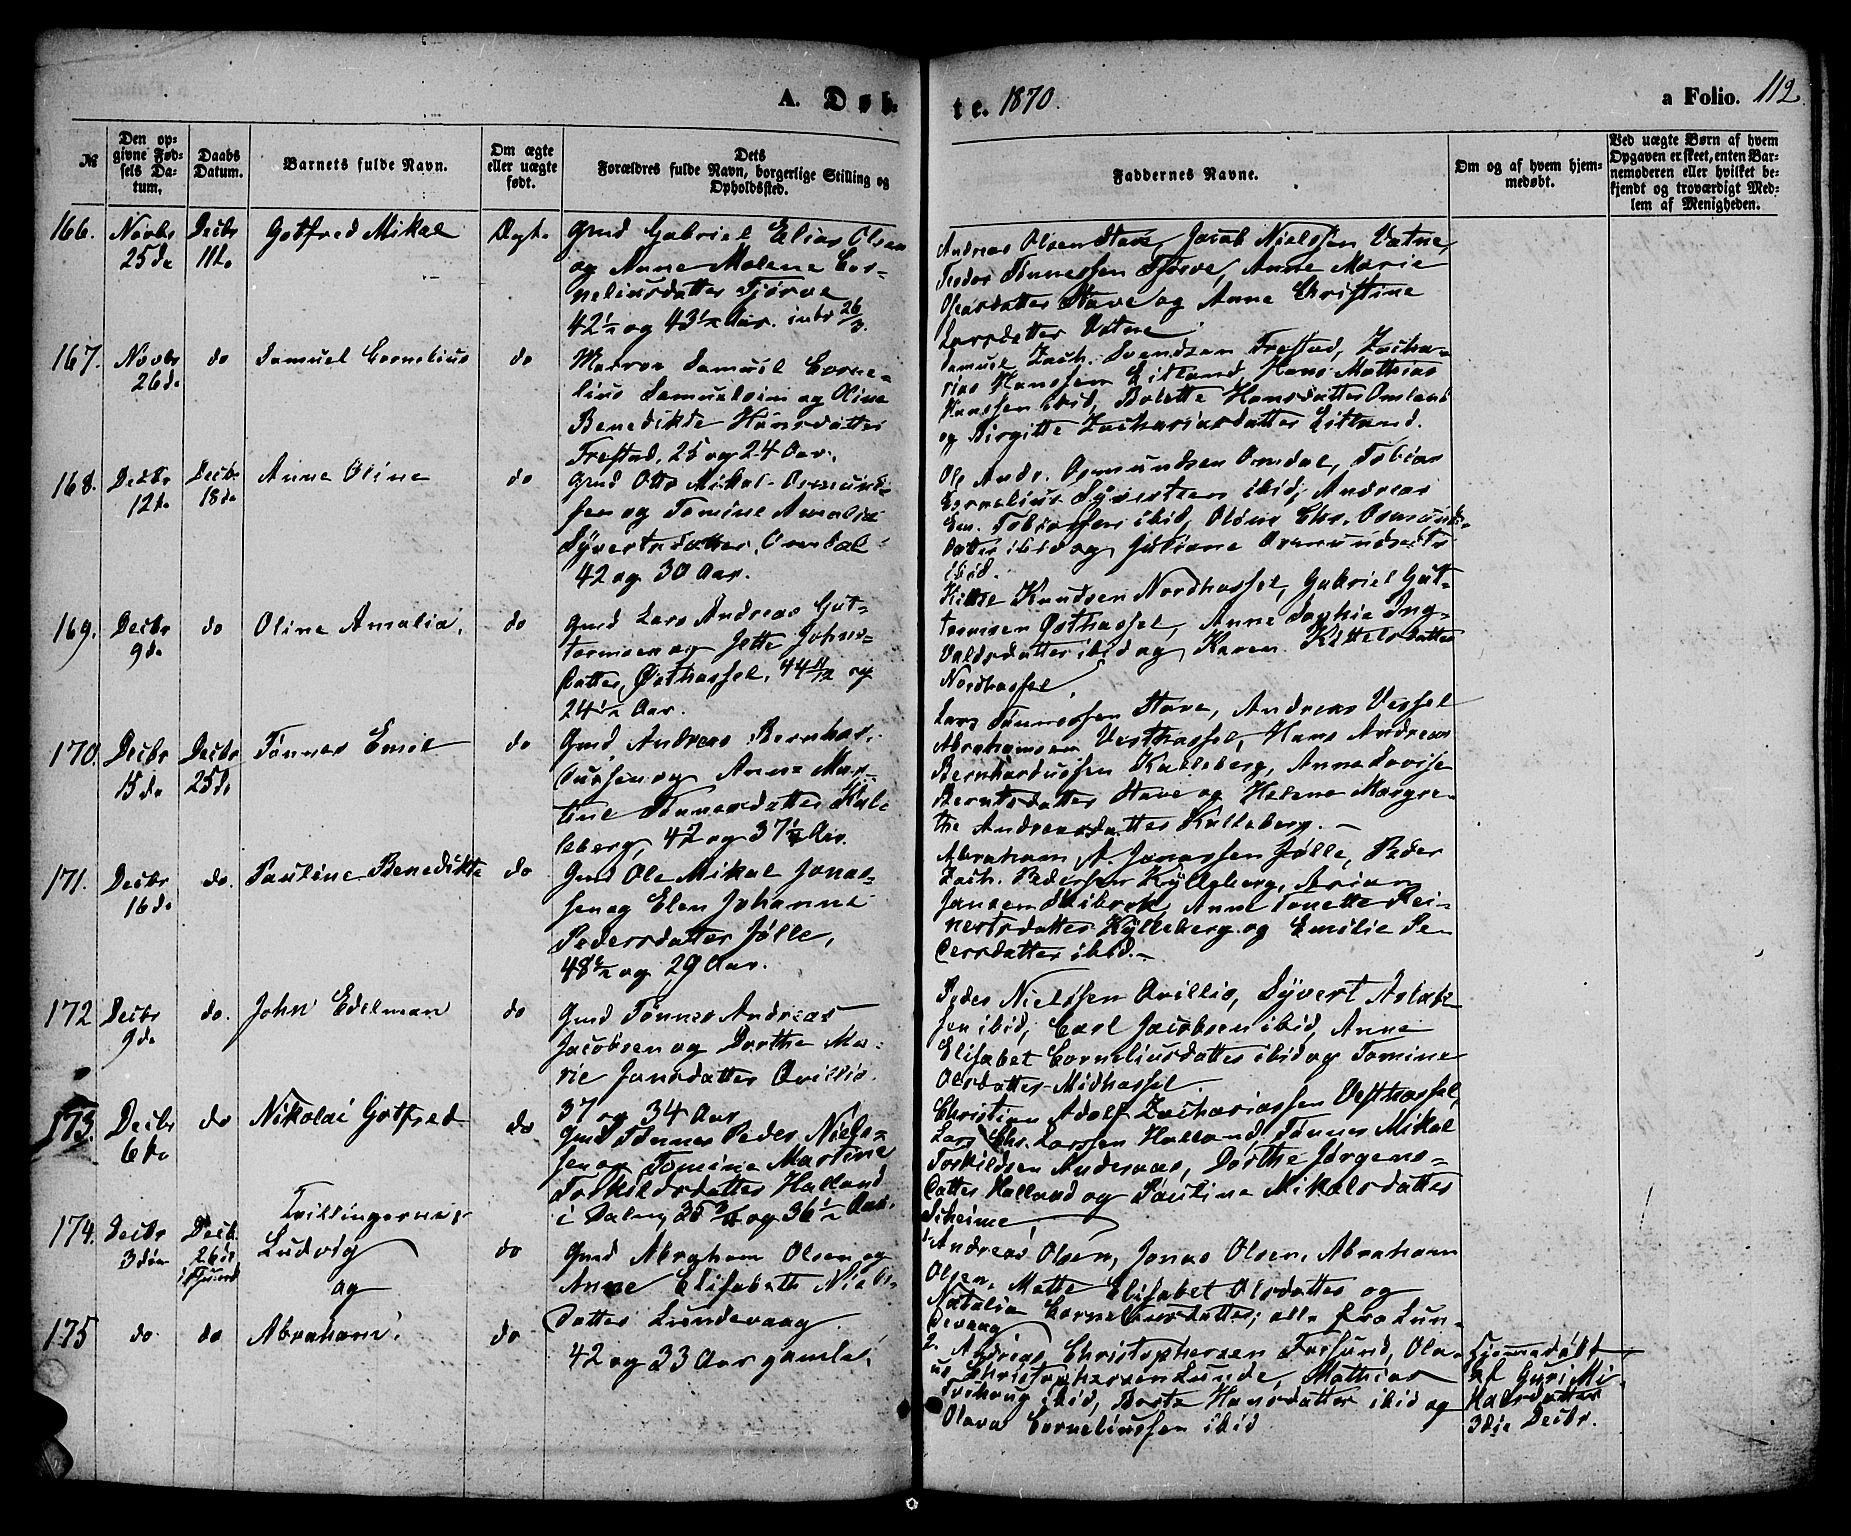 A. Døb-
te. 1870.
a Folio. 112
№
Den op-
givne Fød-
sels Da-
tum.
Daabs
Datum.
Barnets fulde Navn.
Om ægte
eller uægte
født.
Dets
Forældres fulde Navn, borgerlige Stilling og
Opholdssted.
Faddernes Navne.
Om og af hvem hjem-
medøbt.
Ved uægte Børn af hvem
Opgaven er skeet, enten Bar-
nemoderen eller hvilket be-
kjendt og troværdigt Med-
lem af Menigheden.
166.
Novbr
25de
Decbr
11te
Gotfred Mikal
Ægte
Gmd Gabriel Elias Olsen
og Anne Malene Cor-
neliusdatter Tjørve
42½ og 43½ Aar. 26/3.
Andreas Olsen Stave, Jacob Nielssen Vatne,
Peder Tønnessen Tjørve, Anne Marie
Olsdatter Stave og Anne Christine
Larsdatter Vatne
167.
Novbr
26de
do
Samuel Cornelius
do
Samuel Corne-
lius Samuelsen og Oline
Benedikte Hansdatter
Frestad, 25 og 24 Aar.
Samuel Zach. Svendsen Frestad, Zacha-
rias Hanssen Eitland, Hans Mathias
Hanssen ibid, Bolette Hansdatter Omland
og Birgitte Zachariasdatter Eitland.
168.
Decbr
12te
Decbr
18de
Anne Oline
do
Gmd Otto Mikal Osmund-
sen og Tomine Amalie
Syvertsdatter, Omdal
42 og 30 Aar.
Ole Andr. Osmundsen Omdal, Tobias
Cornelius Syvertsen ibid, Andreas
Em. Tobiassen ibid, Oline Chr. Osmunds-
datter ibid og Juliane Osmundsdtr
ibid.
169.
Decbr
9de
do
Oline Amalia,
do
Gmd Lars Andreas Gut-
tormsen og Jette Johns-
datter, Østhassel, 44 11/12 og
24½ Aar.
Kittel Knudsen Nordhassel, Gabriel Gut-
tormsen Østhassel, Anne Sophie Ing-
valdsdatter ibid og Karen Kittelsdatter
Nordhassel.
170.
Decbr
15de
Decbr
25de
Tønnes Emil
do
Gmd Andreas Bernhar-
dussen og Anne Mar-
tine Tønnesdatter Kalle-
berg, 42 og 37½ Aar.
Lars Tønnessen Stave, Andreas Vessel
Abrahamsen Vesthassel, Hans Andreas
Bernhardussen Kalleberg, Anne Lovise
Berntsdatter Stave og Helene Margre-
the Andreasdatter Kalleberg.
171.
Decbr
16de
do.
Pauline Benedikte
do
Gmd Ole Mikal Jonas-
sen og Elen Johanne
Pedersdatter Jølle,
48½ og 29 Aar.
Abraham A. Jonassen Jølle, Peder
Zach. Pedersen Kylleberg, Arian
Jansen Skibrek, Anne Tonette Rei-
nertsdatter Kylleberg og Emilie Pe-
dersdatter ibid.
172
Decbr
9de
do.
John Edelman
do
Gmd Tønnes Andreas
Jacobsen og Dorthe Ma-
rie Jansdatter Qvillio.
37 og 34 Aar
Peder Nielsen Qvillio, Syvert Aslak-
sen ibid, Carl Jacobsen ibid, Anne
Elisabet Corneliusdatter ibid og Tomine
Olsdatter Midhassel.
173.
Decbr
6te
do
Nikolai Gotfred
do
Gmd Tønnes Peder Niels-
sen og Tomine Martine
Torkildsdatter Halland
i Dalen, 35¾ og 36½ Aar.
Christian Adolf Zachariassen Vesthassel,
Lars Chr. Larssen Halland, Tønnes Mikal
Torkildsen Andersaas, Dorthe Jørgens-
datter Halland og Pauline Mikalsdatter
Skeime
174.
Decbr
3die
Decbr
26de
Tvillingerne
Ludvig
og
do
Gmd Abraham Olsen og
Anne Elisabeth Niels-
datter Lundevaag
42 og 33 Aar gamle.
Andreas Olsen, Jonas Olsen, Abraham
Olsen, Mette Elisabet Olsdatter og
Natalia Corneliusdatter, alle fra Lun-
devaag
175
do.
do
Abraham.
do
2. Andreas Christophersen Farsund, Ola-
us Christophersen Lunde, Mathias
ibid, Berte Hansdatter ibid og
Olava Corneliussen ibid
Hjemmedøbt
af Guri Mi-
kalsdatter
3die Decbr.